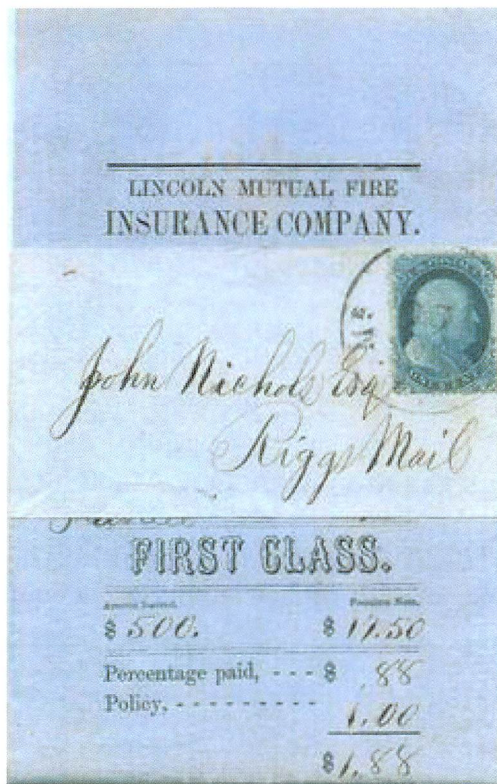 LINCOLN MUTUAL FIRE
INSURANCE COMPANY.
John Nichols Esq
Riggs Mail
FIRST CLASS.
Amount Insured. Premium Note.
$ 500. $ 17.50
Percentage paid, - - - $ .88
Policy, - - - - - - - - - 1.00
$1.88